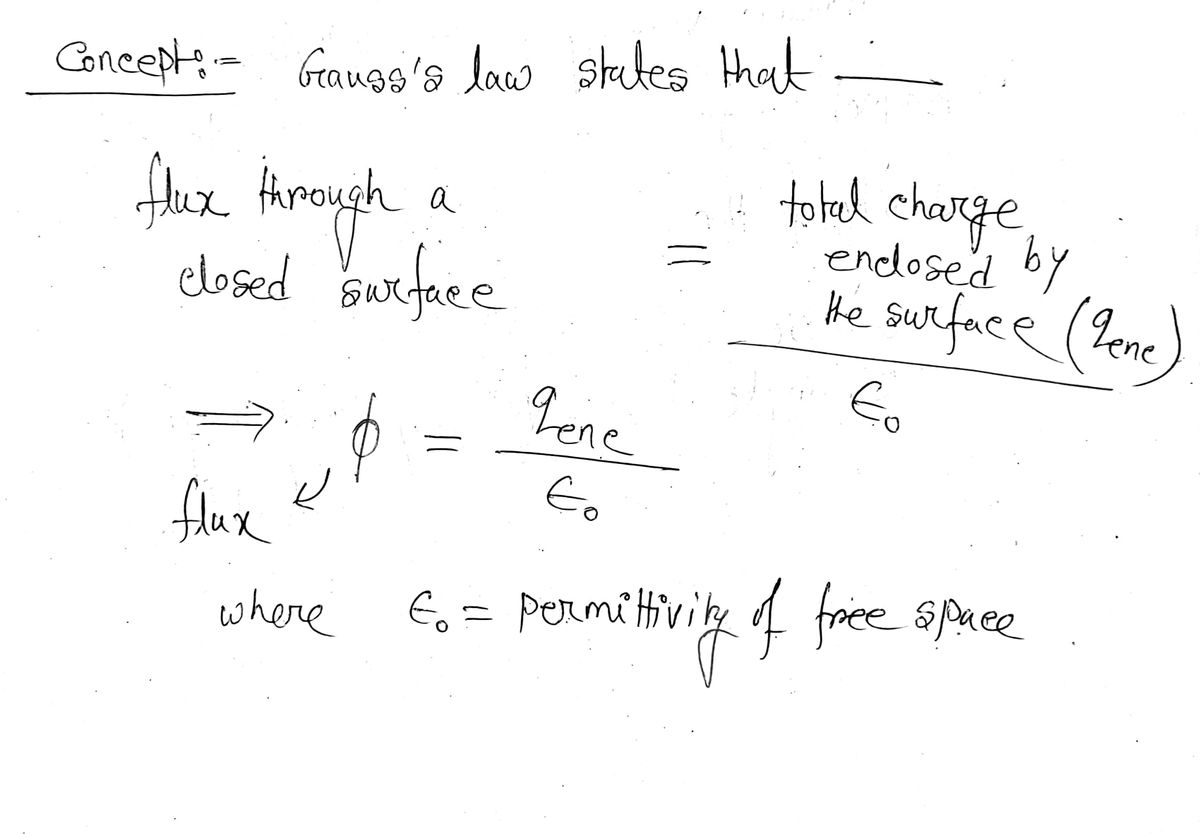 Concept:- Gauss's law states that —
flux through a
closed surface
=
total charge
enclosed by
the surface (qenc)
ϵ₀
⇒ ϕ = qenc / ϵ₀
flux ↙
where ϵ₀ = permittivity of free space